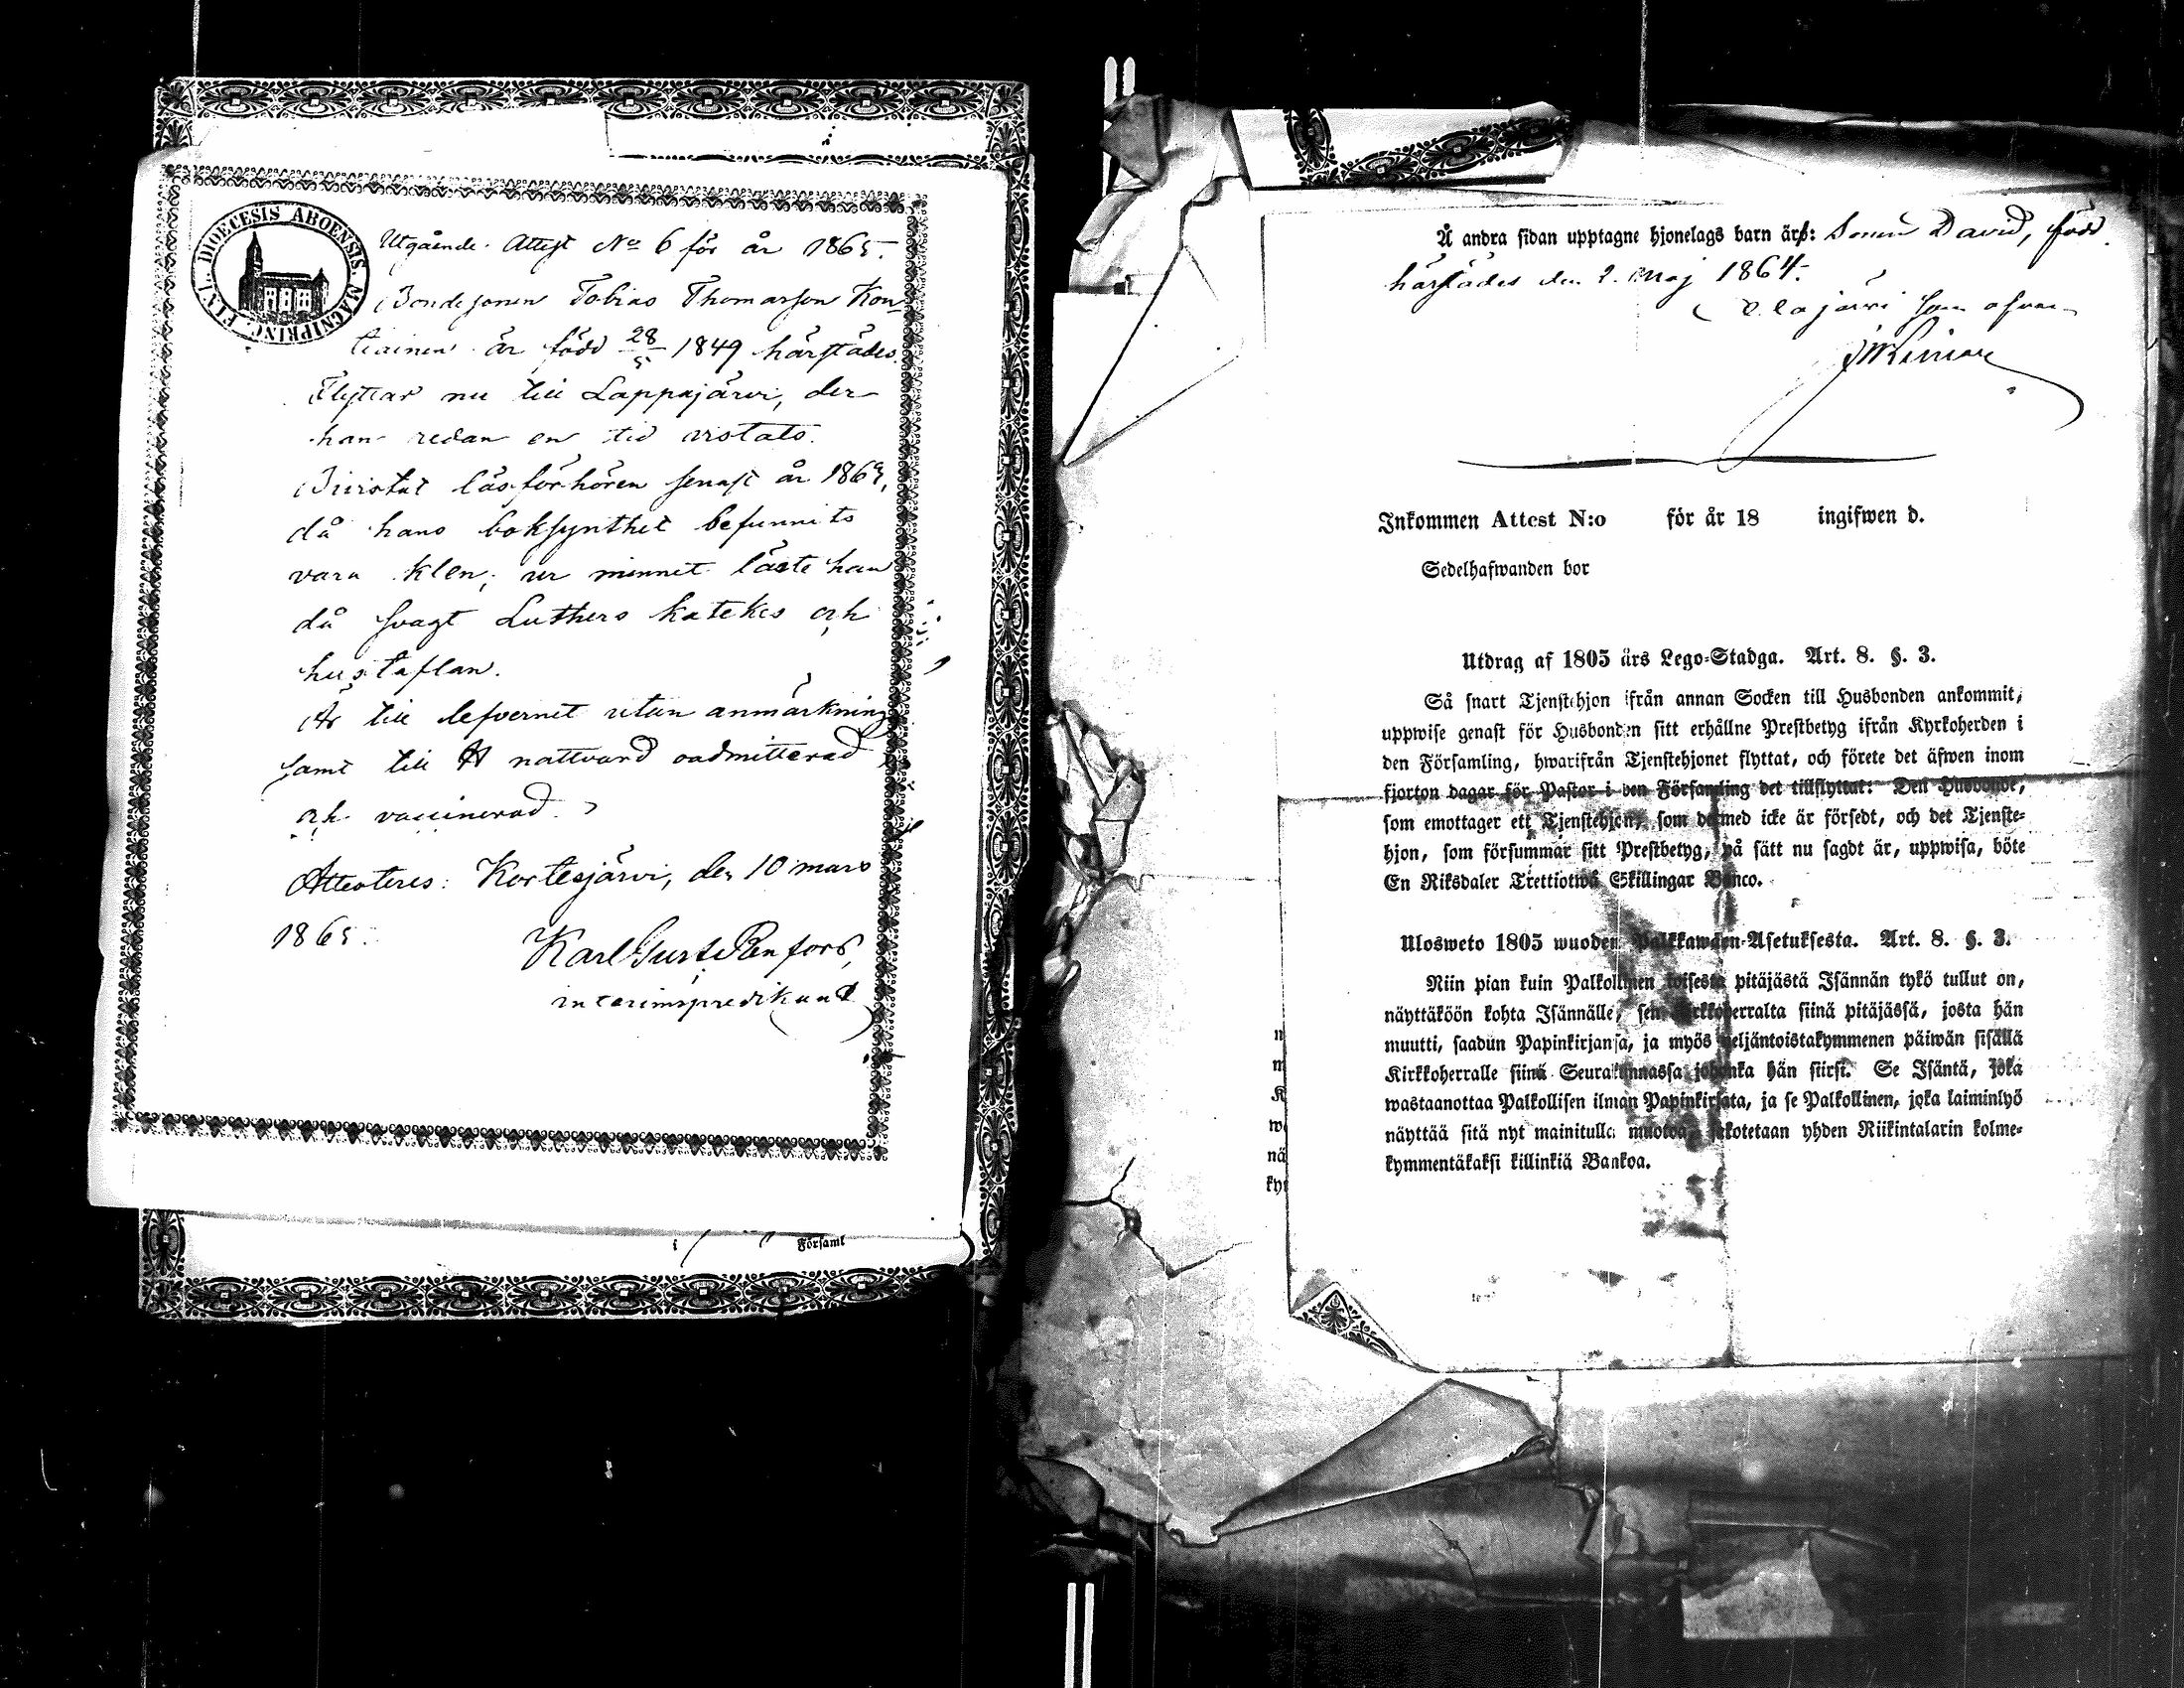 DIOECESIS ABOENSIS. MAGNI PRINC. FINL.
Utgående Attest No 6 för år 1865.
Bondesonen Tobias Thomasson Kon-
tiainen är född 28/5 1849 härstädes.
Flyttar nu till Lappajärvi, der
han redan en tid vistats.
Bivistat läsförhören senast år 1864,
då hans boksynthet befunnits
vara klen; ur minnet läste han
då svagt Luthers katekes och
hustaflan.
Är till lefvernet utan anmärkning
samt till H nattvard oadmitterad
och vaccinerad.
Attesteres: Kortesjärvi, den 10 mars
1865.
Karl Gust
interimspredikant
i Förſaml
Å andra ſidan upptagne hjonelags barn är: Sonen David, född
härstädes den 2. Maj 1864.
som ofvan
Inkommen Attest N:o för år 18 ingifwen d.
Sedelhafwanden bor
Utdrag af 1805 års Lego-Stadga. Art. 8. §. 3.
Så ſnart Tjenſtehjon ifrån annan Socken till Husbonden ankommit,
uppwiſe genaſt för Husbonden ſitt erhållne Preſtbetyg ifrån Kyrkoherden i
den Förſamling, hwarifrån Tjenſtehjonet flyttat, och förete det äfwen inom
fjorton dagar för Paſtor i den Förſamling det tillflyttat: Den Husbonde,
ſom emottager ett Tjenſtehjon, ſom dermed icke är förſedt, och det Tjenſte-
hjon, ſom förſummar ſitt Preſtbetyg, på ſätt nu ſagdt är, uppwiſa, böte
En Riksdaler Trettiotwå Skillingar Banco.
Ulosweto 1805 wuoden Palkkawäen-Aſetukſesta. Art. 8. §. 3.
Niin pian kuin Palkollinen toiſesta pitäjästä Iſännän tykö tullut on,
näyttäköön kohta Iſännälle, ſen Kirkkoherralta ſiinä pitäjäsſä, josta hän
muutti, ſaadun Papinkirjanſa, ja myös neljäntoistakymmenen päiwän ſiſällä
Kirkkoherralle ſiinä Seurakunnasſa johonka hän ſiirſi. Se Iſäntä, joka
wastaanottaa Palkolliſen ilman Papinkirjata, ja ſe Palkollinen, joka laiminlyö
näyttää ſitä nyt mainitulla muotoa, ſakotetaan yhden Riikintalarin kolme-
kymmentäkakſi killinkiä Bankoa.